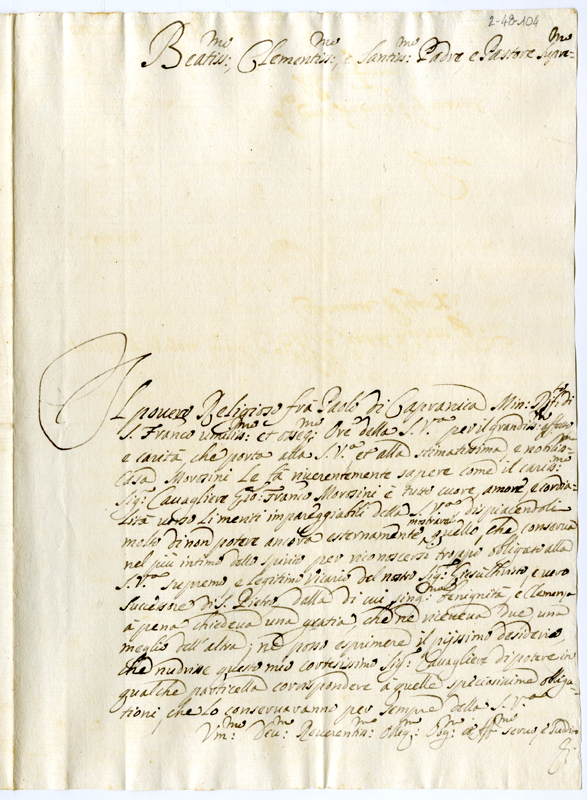 2-48-104
Beatiss:mo, Clementiss:mo, e Santiss:mo Padre e Pastore Supre-mo
Il povero Religioso frà Paolo di Capranica Min: di
S. Franco umiliss:mo et osseq:mo Ore della S.V.ra per il grandis:mo affetto
e carità che porta alla S.V.ra et alla stimatissima e nobilis:ma
Casa Morosini le fà riverentemente sapere come il cariss:mo
Sig:r Cavagliere Gio: Franco Morosini è tuto cuore, amore, e cordia-
lità verso li meriti impareggiabili della S.V.ra dispiacendole
molto di non potere ancora esternamente mostrare quello, che conserva
nel più intimo dello spirito per riconoscersi troppo obligato alla
S.V.ra Supremo e legitimo Vicario del nostro Sig:r Giesù Christo, e vero
Sucessore di S. Pietro, dalla di cui sing:ma benignità, e Clemenza
à pena chiedeva una gratia che ne riceveva due una
meglio dell'altra; ne posso esprimere il pijssimo desiderio
che nudrisse questo mio cortesissimo Sig:r Cavagliere di potere in
qualche particella corrispondere à quelle speciosissime obliga-
tioni, che lo conservaranno per sempre della S.V.ra
Um:mo Dev:mo Reverentis:mo Obblig:mo Osq:mo et Aff:mo servo, e sudito